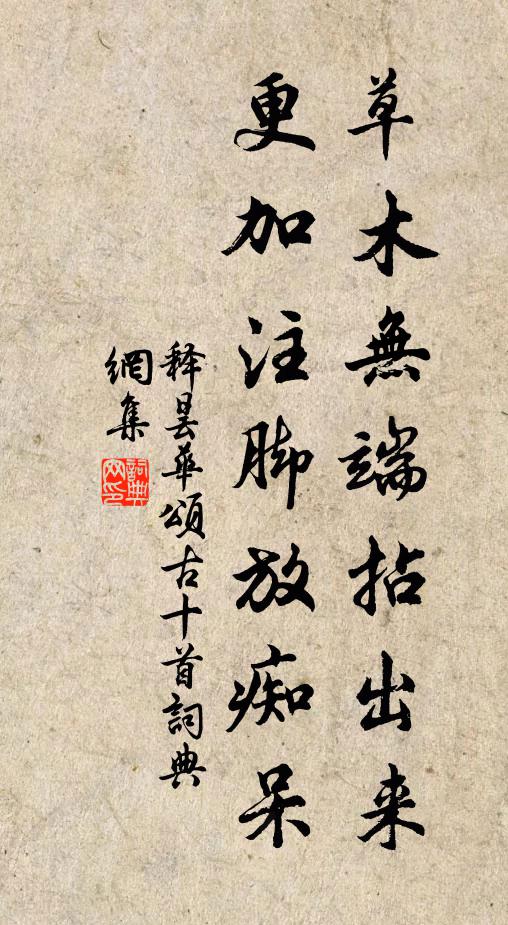 草木無端拈出来
更加注脚放痴呆
释昙華頌古十首詞典
網集
詞典网印